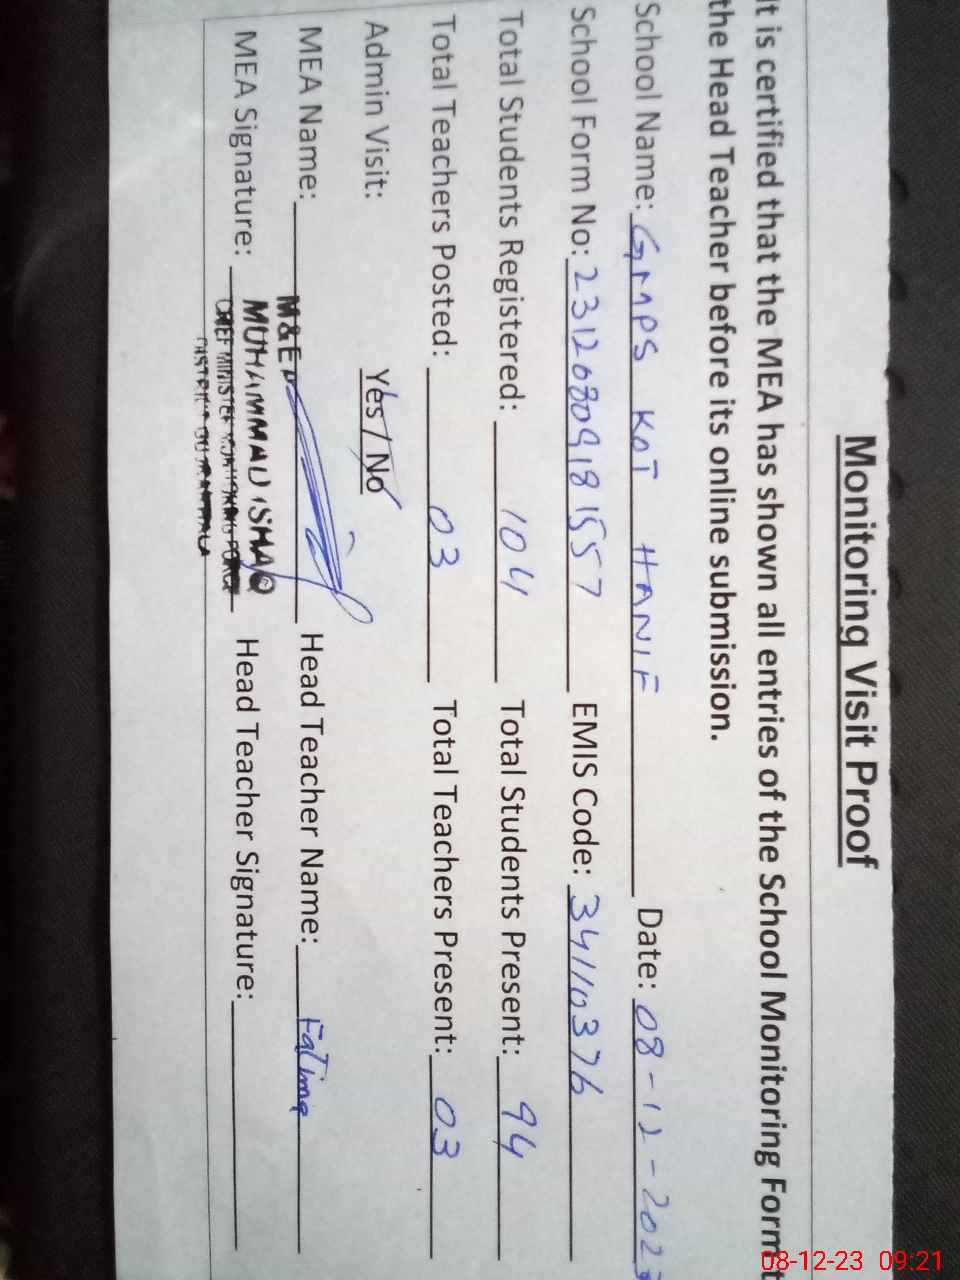 Monitoring Visit Proof
It is certified that the MEA has shown all entries of the School Monitoring Form t
the Head Teacher before its online submission.
School Name: GMPS KOT HANIF Date: 08-12-202
School Form No: 2312080918 1557 EMIS Code: 34110376
Total Students Registered: 104 Total Students Present: 94
Total Teachers Posted: 03 Total Teachers Present: 03
Admin Visit: Yes / No
MEA Name: Head Teacher Name: Fatima
M&E
MEA Signature: MUHAMMAD ISHAQ Head Teacher Signature:
CHIEF MINISTER MONITORING FORCE
08-12-23 09:21